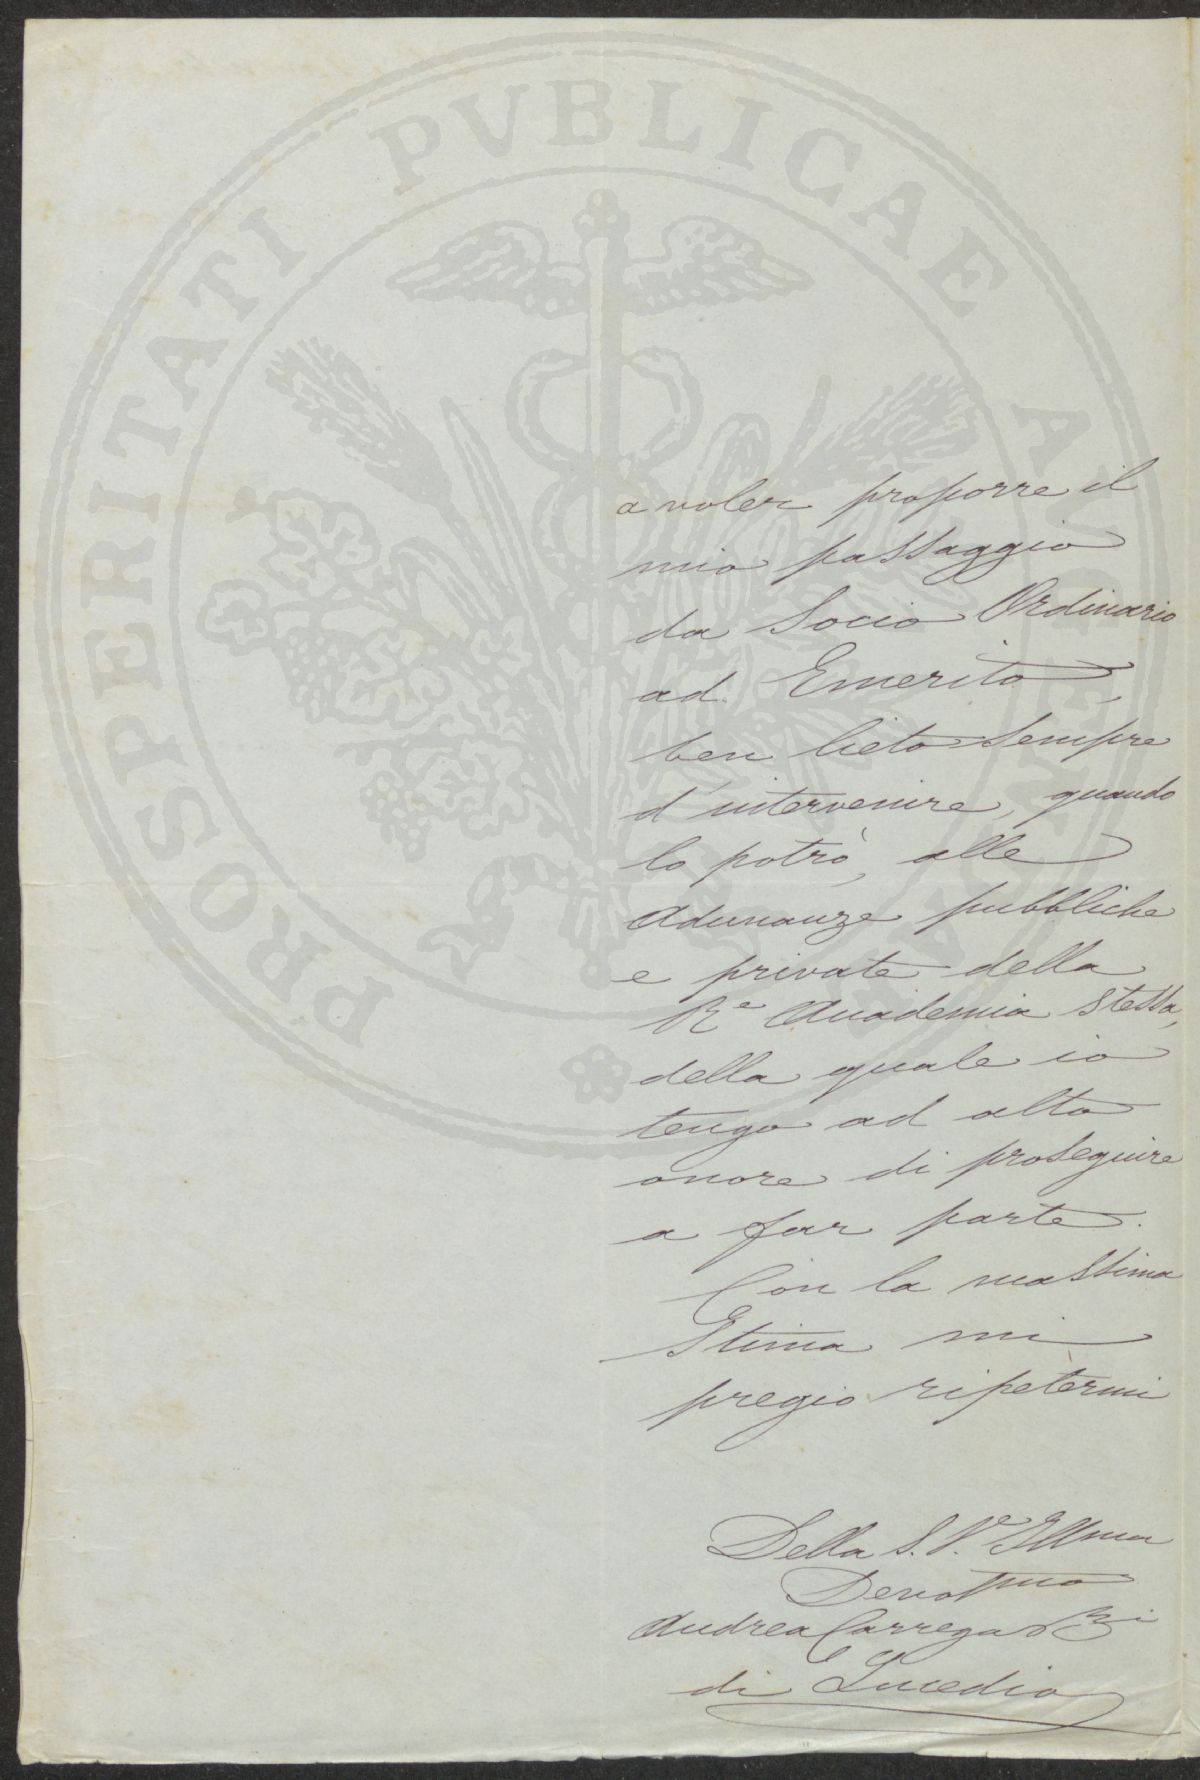 PROSPERITATI PVBLICAE AVGENDAE
a voler proporre il
mio passaggio
da Socio Ordinario
ad Emerito,
ben lieto sempre
d'intervenire, quando
lo potrò, alle
Adunanze pubbliche
e private della
Re Accademia stessa,
della quale io
tengo ad alto
onore di proseguire
a far parte.
Con la massima
Stima mi
pregio ripetermi
Della S. V. Illma
Devotmo
Andrea Carrega Bi
di Lucedio